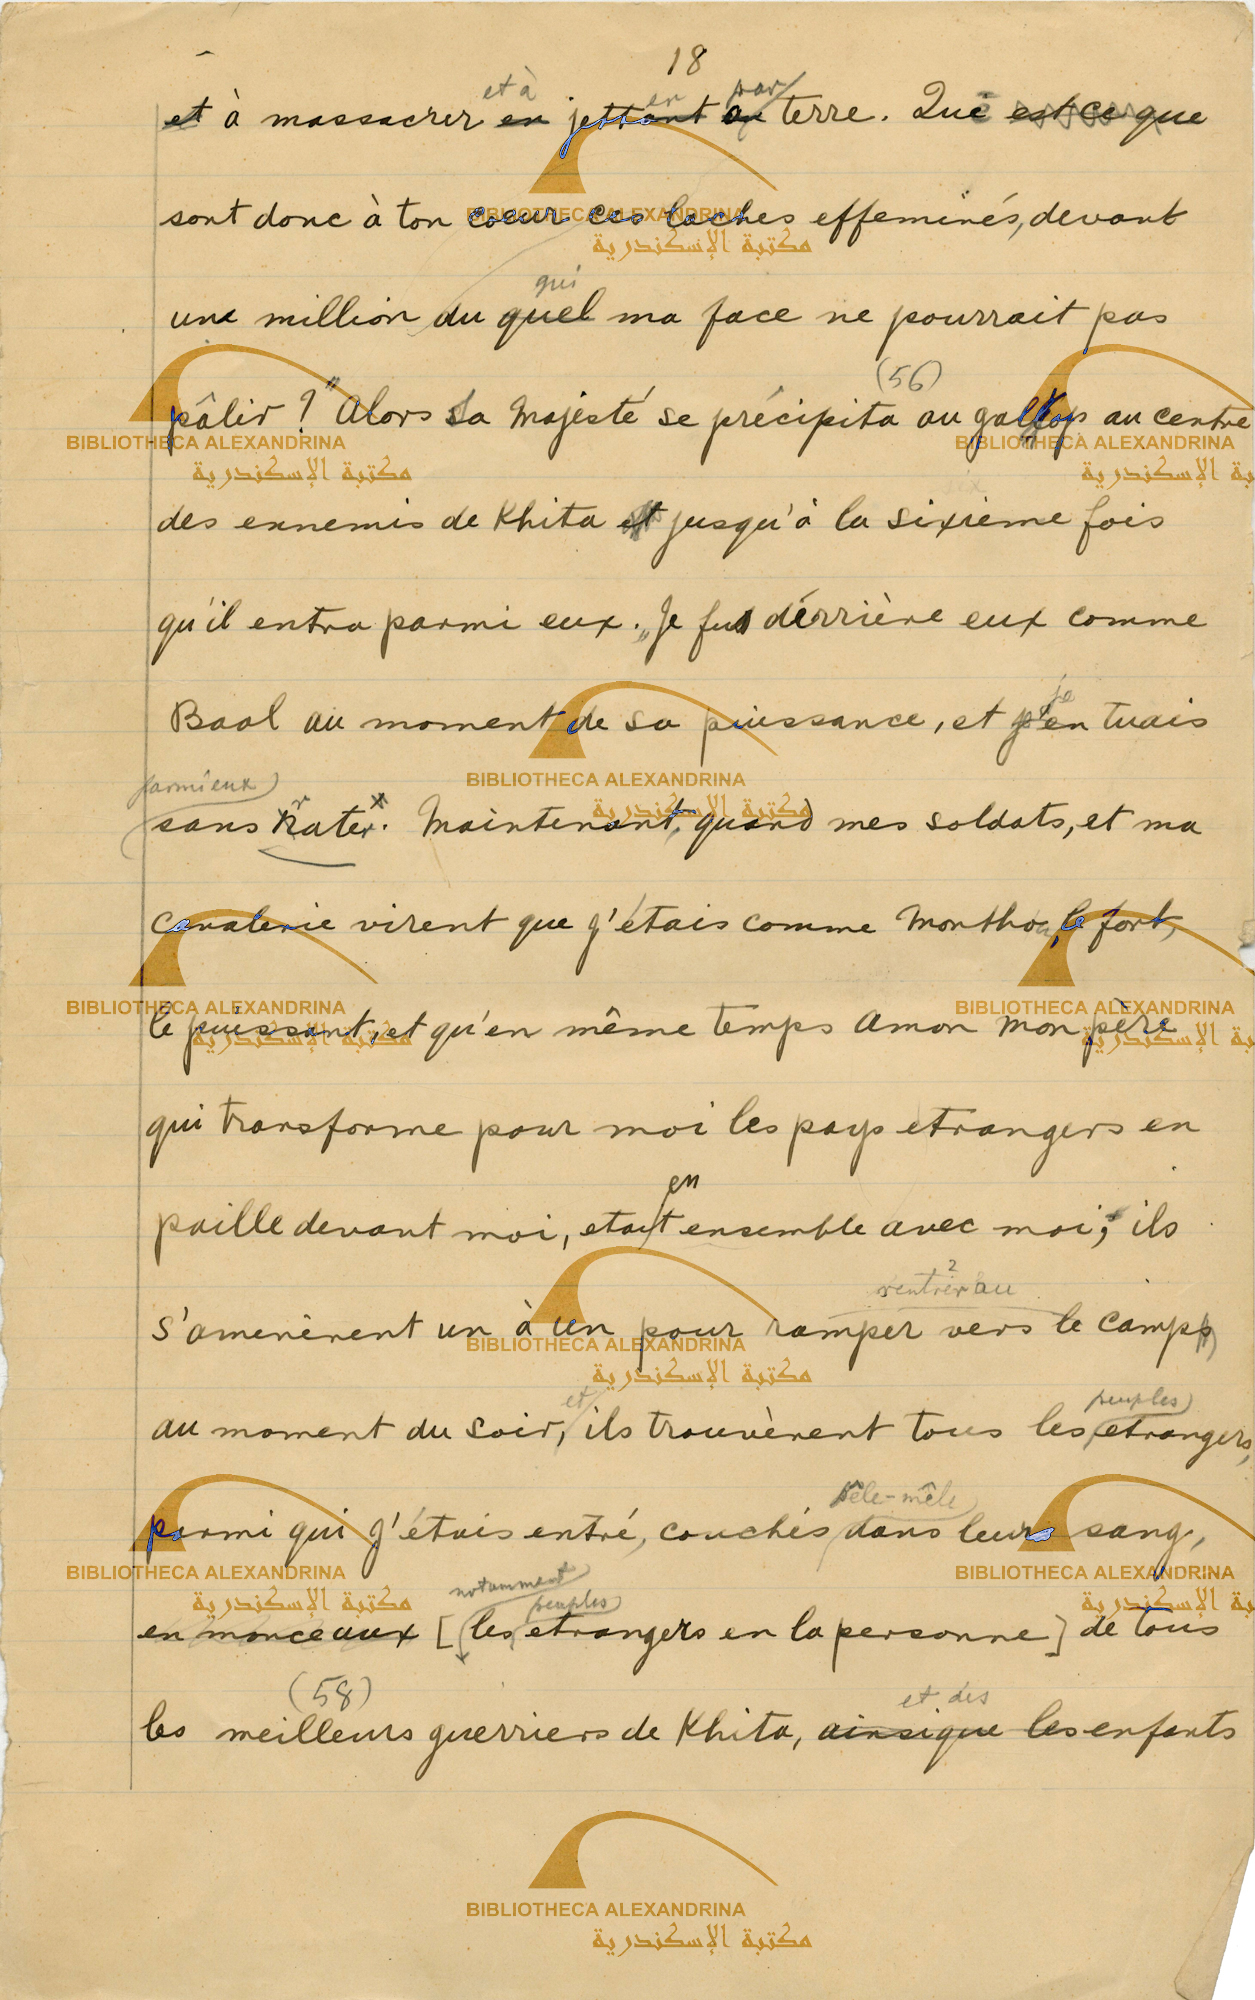 18
et à en par
et à massacrer en jettant au terre. Que est ce que
sont donc à ton coeur ces laches effeminés, devant
qui
une million du quel ma face ne pourrait pas
(56)
pâlir ?" Alors Sa Majesté se précipita au gallop au centre
des ennemis de Khita et jusqu'à la sixième fois
qu'il entra parmi eux. „Je fus dérrière eux comme
je
Baal au moment de sa puissance, et j'en tuais
parmi eux
sans Rater. Maintenant, quand mes soldats, et ma
cavalerie virent que j'étais comme Monthou, le fort,
le puissant, et qu'en même temps Amon mon père
qui transforme pour moi les pays etrangers en
en
paille devant moi, etait ensemble avec moi; ils
rentrer au 2
s'amenèrent un à un pour ramper vers le camps
et peuples
au moment du soir, ils trouvèrent tous les etrangers,
pêle-mêle
parmi qui j'étais entré, couchés dans leurs sang,
notamment peuples
en monceaux [les etrangers en la personne] de tous
(58) et des
les meilleurs guerriers de Khita, ainsi que les enfants
BIBLIOTHECA ALEXANDRINA
مكتبة الإسكندرية